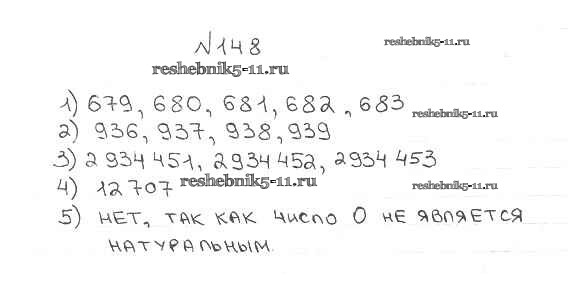 №148
reshebnik5-11.ru
reshebnik5-11.ru
1) 679, 680, 681, 682, 683
reshebnik5-11.ru
2) 936, 937, 938, 939
3) 2 934 451, 2934 452, 2934 453
4) 12 707
reshebnik5-11.ru
reshebnik5-11.ru
5) НЕТ, ТАК КАК ЧИСЛО 0 НЕ ЯВЛЯЕТСЯ
НАТУРАЛЬНЫМ.